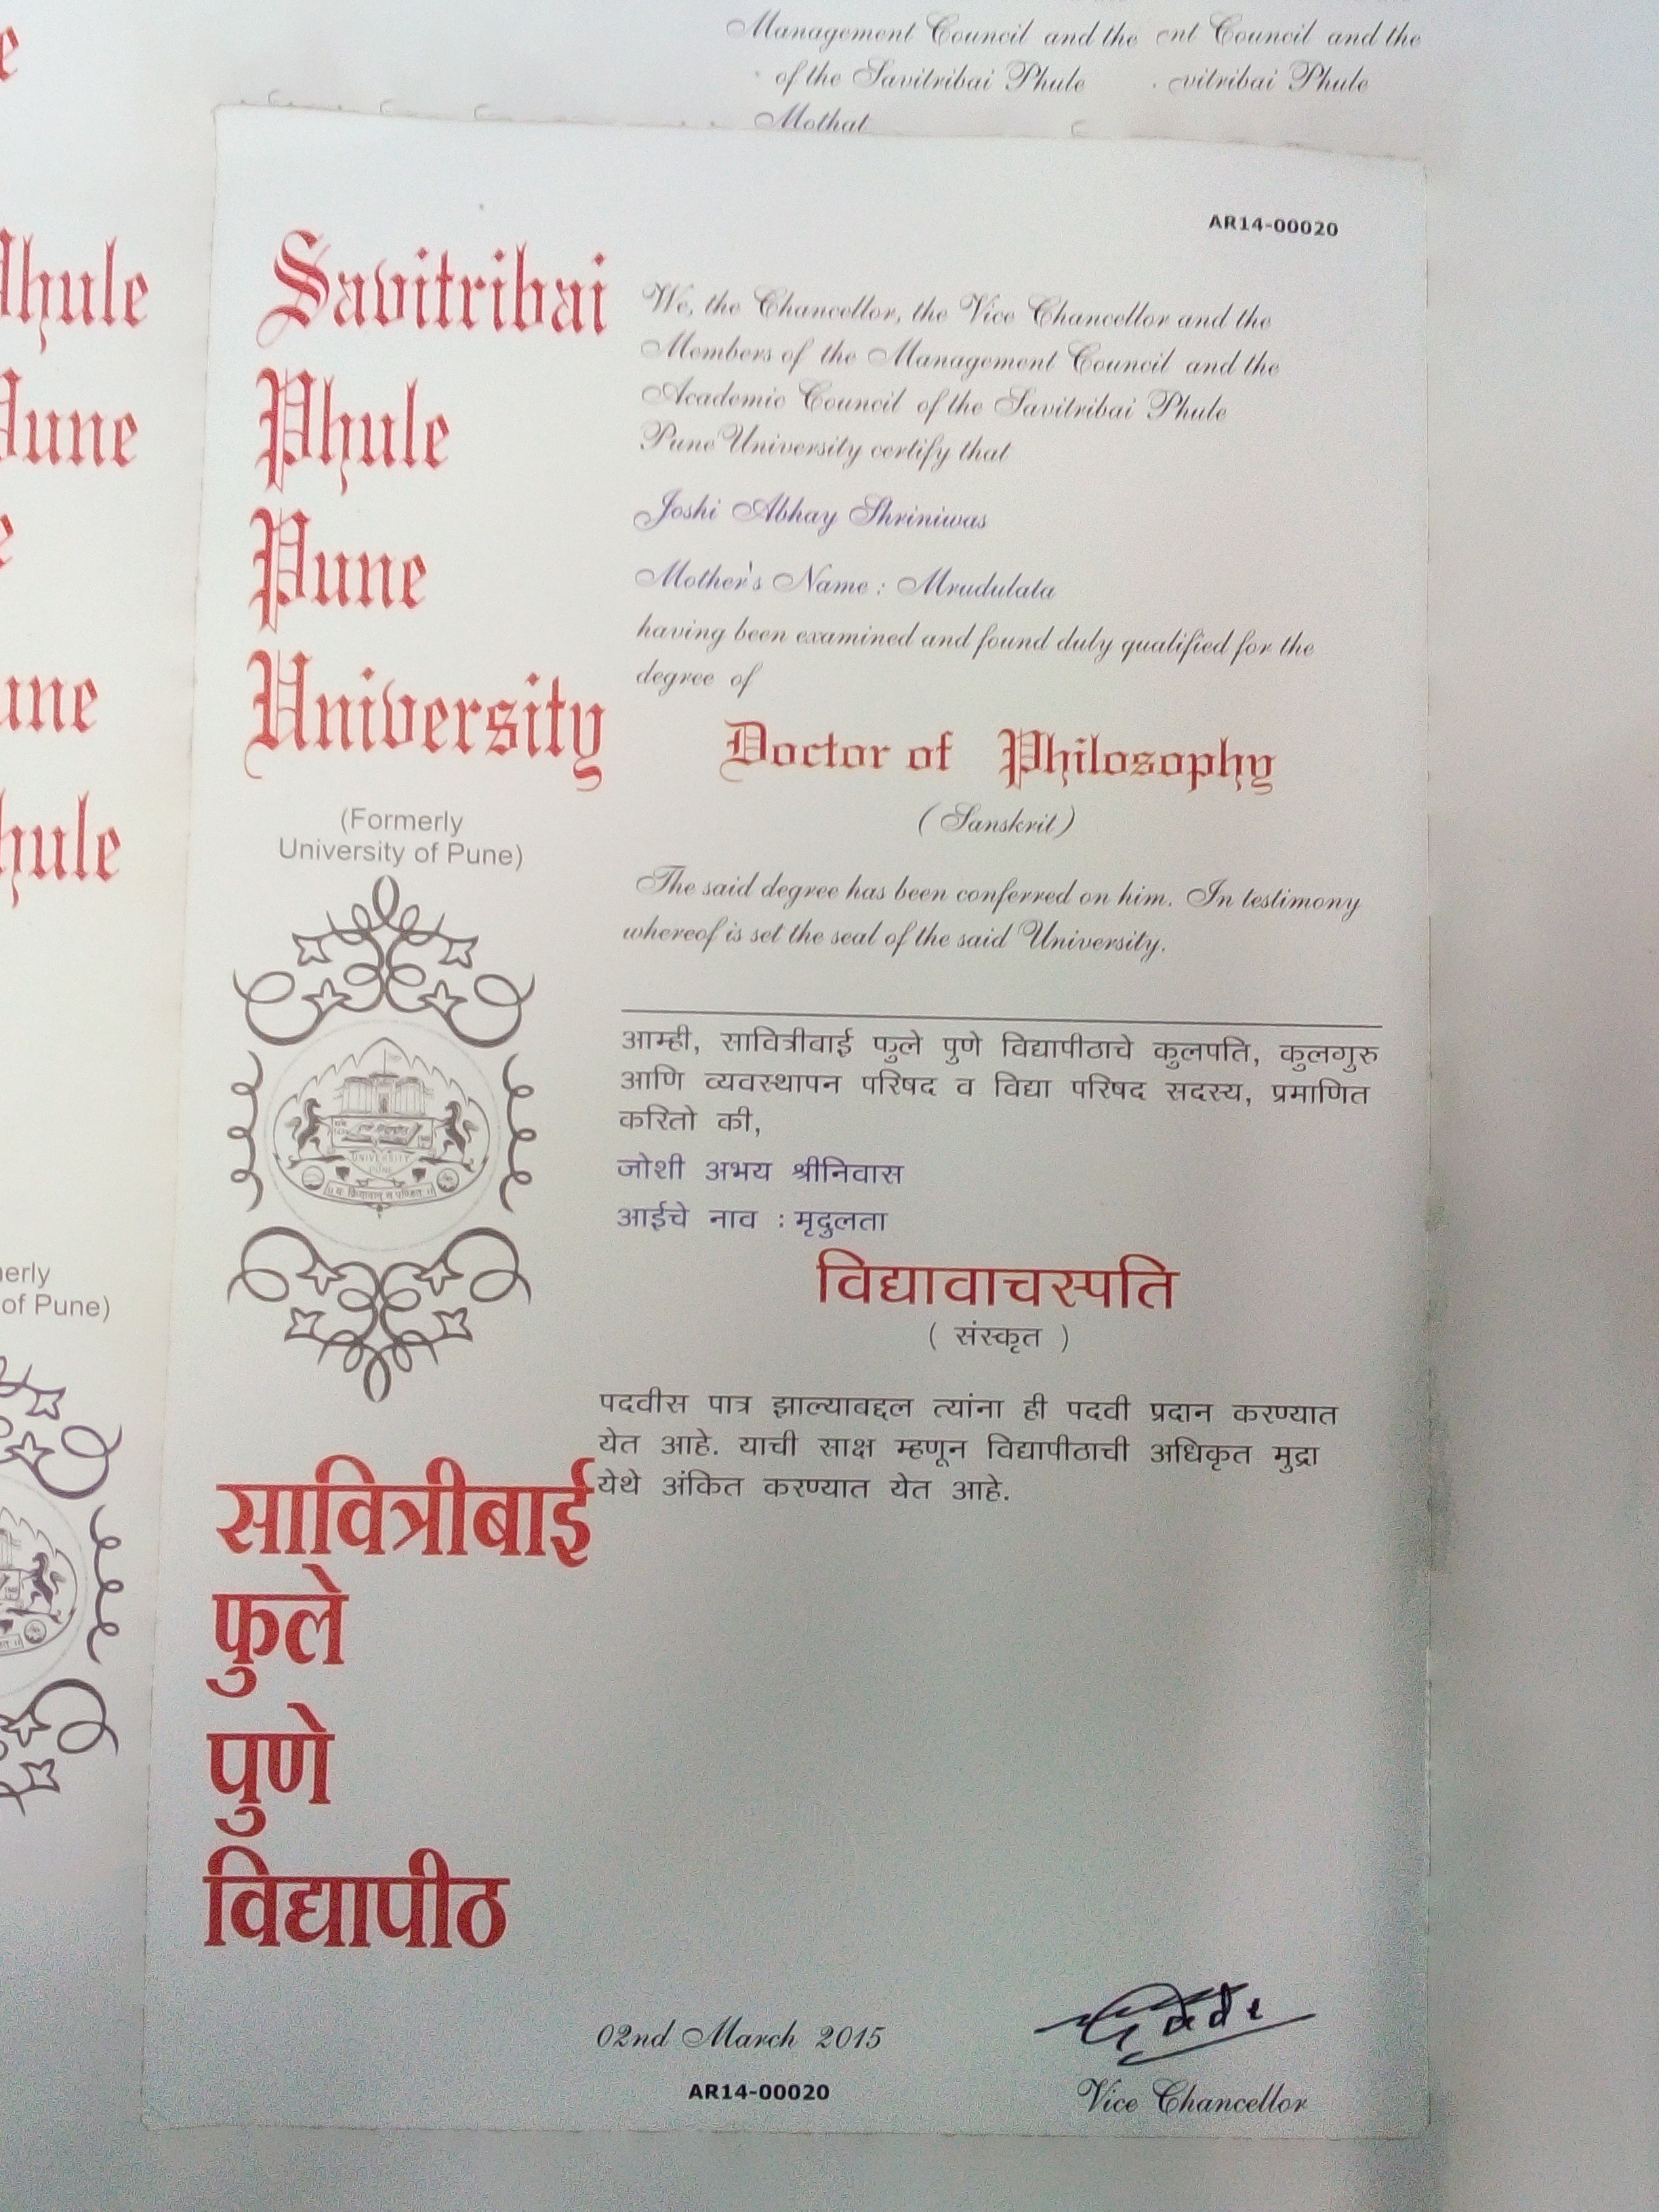 Management Council and the ent Council and the
of the Savitribai Phule vitribai Phule
Mothat
AR14-00020
Savitribai
Phule
Pune
University
(Formerly
University of Pune)
We, the Chancellor, the Vice Chancellor and the
Members of the Management Council and the
Academic Council of the Savitribai Phule
Pune University certify that
Joshi Abhay Shriniwas
Mother's Name : Mrudulata
having been examined and found duly qualified for the
degree of
Doctor of Philosophy
(Sanskrit)
The said degree has been conferred on him. In testimony
whereof is set the seal of the said University.
आम्ही, सावित्रीबाई फुले पुणे विद्यापीठाचे कुलपति, कुलगुरु
आणि व्यवस्थापन परिषद व विद्या परिषद सदस्य, प्रमाणित
करितो की,
जोशी अभय श्रीनिवास
आईचे नाव : मृदुलता
विद्यावाचस्पति
( संस्कृत )
पदवीस पात्र झाल्याबद्दल त्यांना ही पदवी प्रदान करण्यात
येत आहे. याची साक्ष म्हणून विद्यापीठाची अधिकृत मुद्रा
येथे अंकित करण्यात येत आहे.
UNIVERSITY
PUNE
॥ यः क्रियावान् स पण्डितः ॥
सावित्रीबाई
फुले
पुणे
विद्यापीठ
02nd March 2015
AR14-00020
Vice Chancellor
hule
une
une
hule
erly
of Pune)